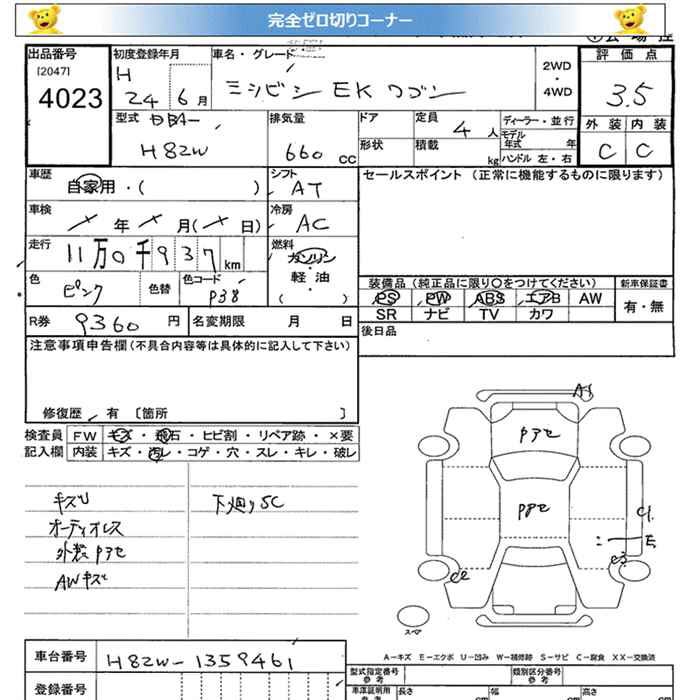 完全ゼロ切りコーナー
出品番号 初度登録年月 車名・グレード 評価点
[2047] H 2WD
4023 24 6月 ミツビシ EKワゴン ・ 3.5
4WD
型式 DBA- 排気量 ドア 定員 4人 ディーラー・並行 外装 内装
H82W 660cc 形状 積載 kg モデル年式 年 C C
ハンドル 左・右
車歴 シフト セールスポイント (正常に機能するものに限ります)
自家用・( ) AT
車検 年 月( 日) 冷房 AC
走行 11万0千937km 燃料 ガソリン
・
軽・油
( )
色 ピンク 色替 色コード P38
装備品 (純正品に限り○をつけてください) 新車保証書
PS PW ABS エアB AW 有・無
SR ナビ TV カワ
R券 9360円 名変期限 月 日 後日品
注意事項申告欄(不具合内容等は具体的に記入して下さい)
修復歴 有 〔箇所 〕
検査員 FW キズ・飛石・ヒビ割・リペア跡・×要
記入欄 内装 キズ・汚レ・コゲ・穴・スレ・キレ・破レ
キズU 下廻りSC
オーディオレス
外装Pアセ
AWキズ
A1
Pアセ
Pアセ
C1
E
C2 C3
スペア
A-キズ E-エクボ U-凹み W-補修跡 S-サビ C-腐食 XX-交換済
車台番号 H82W-1359461
型式指定番号 参考 類別区分番号 参考
登録番号 車庫証明用 参考 長さ cm 幅 cm 高さ cm